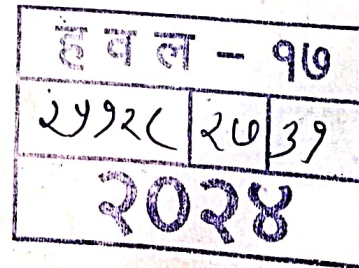 ह व ल - १७
२५१२८ २७ ३१
२०२४